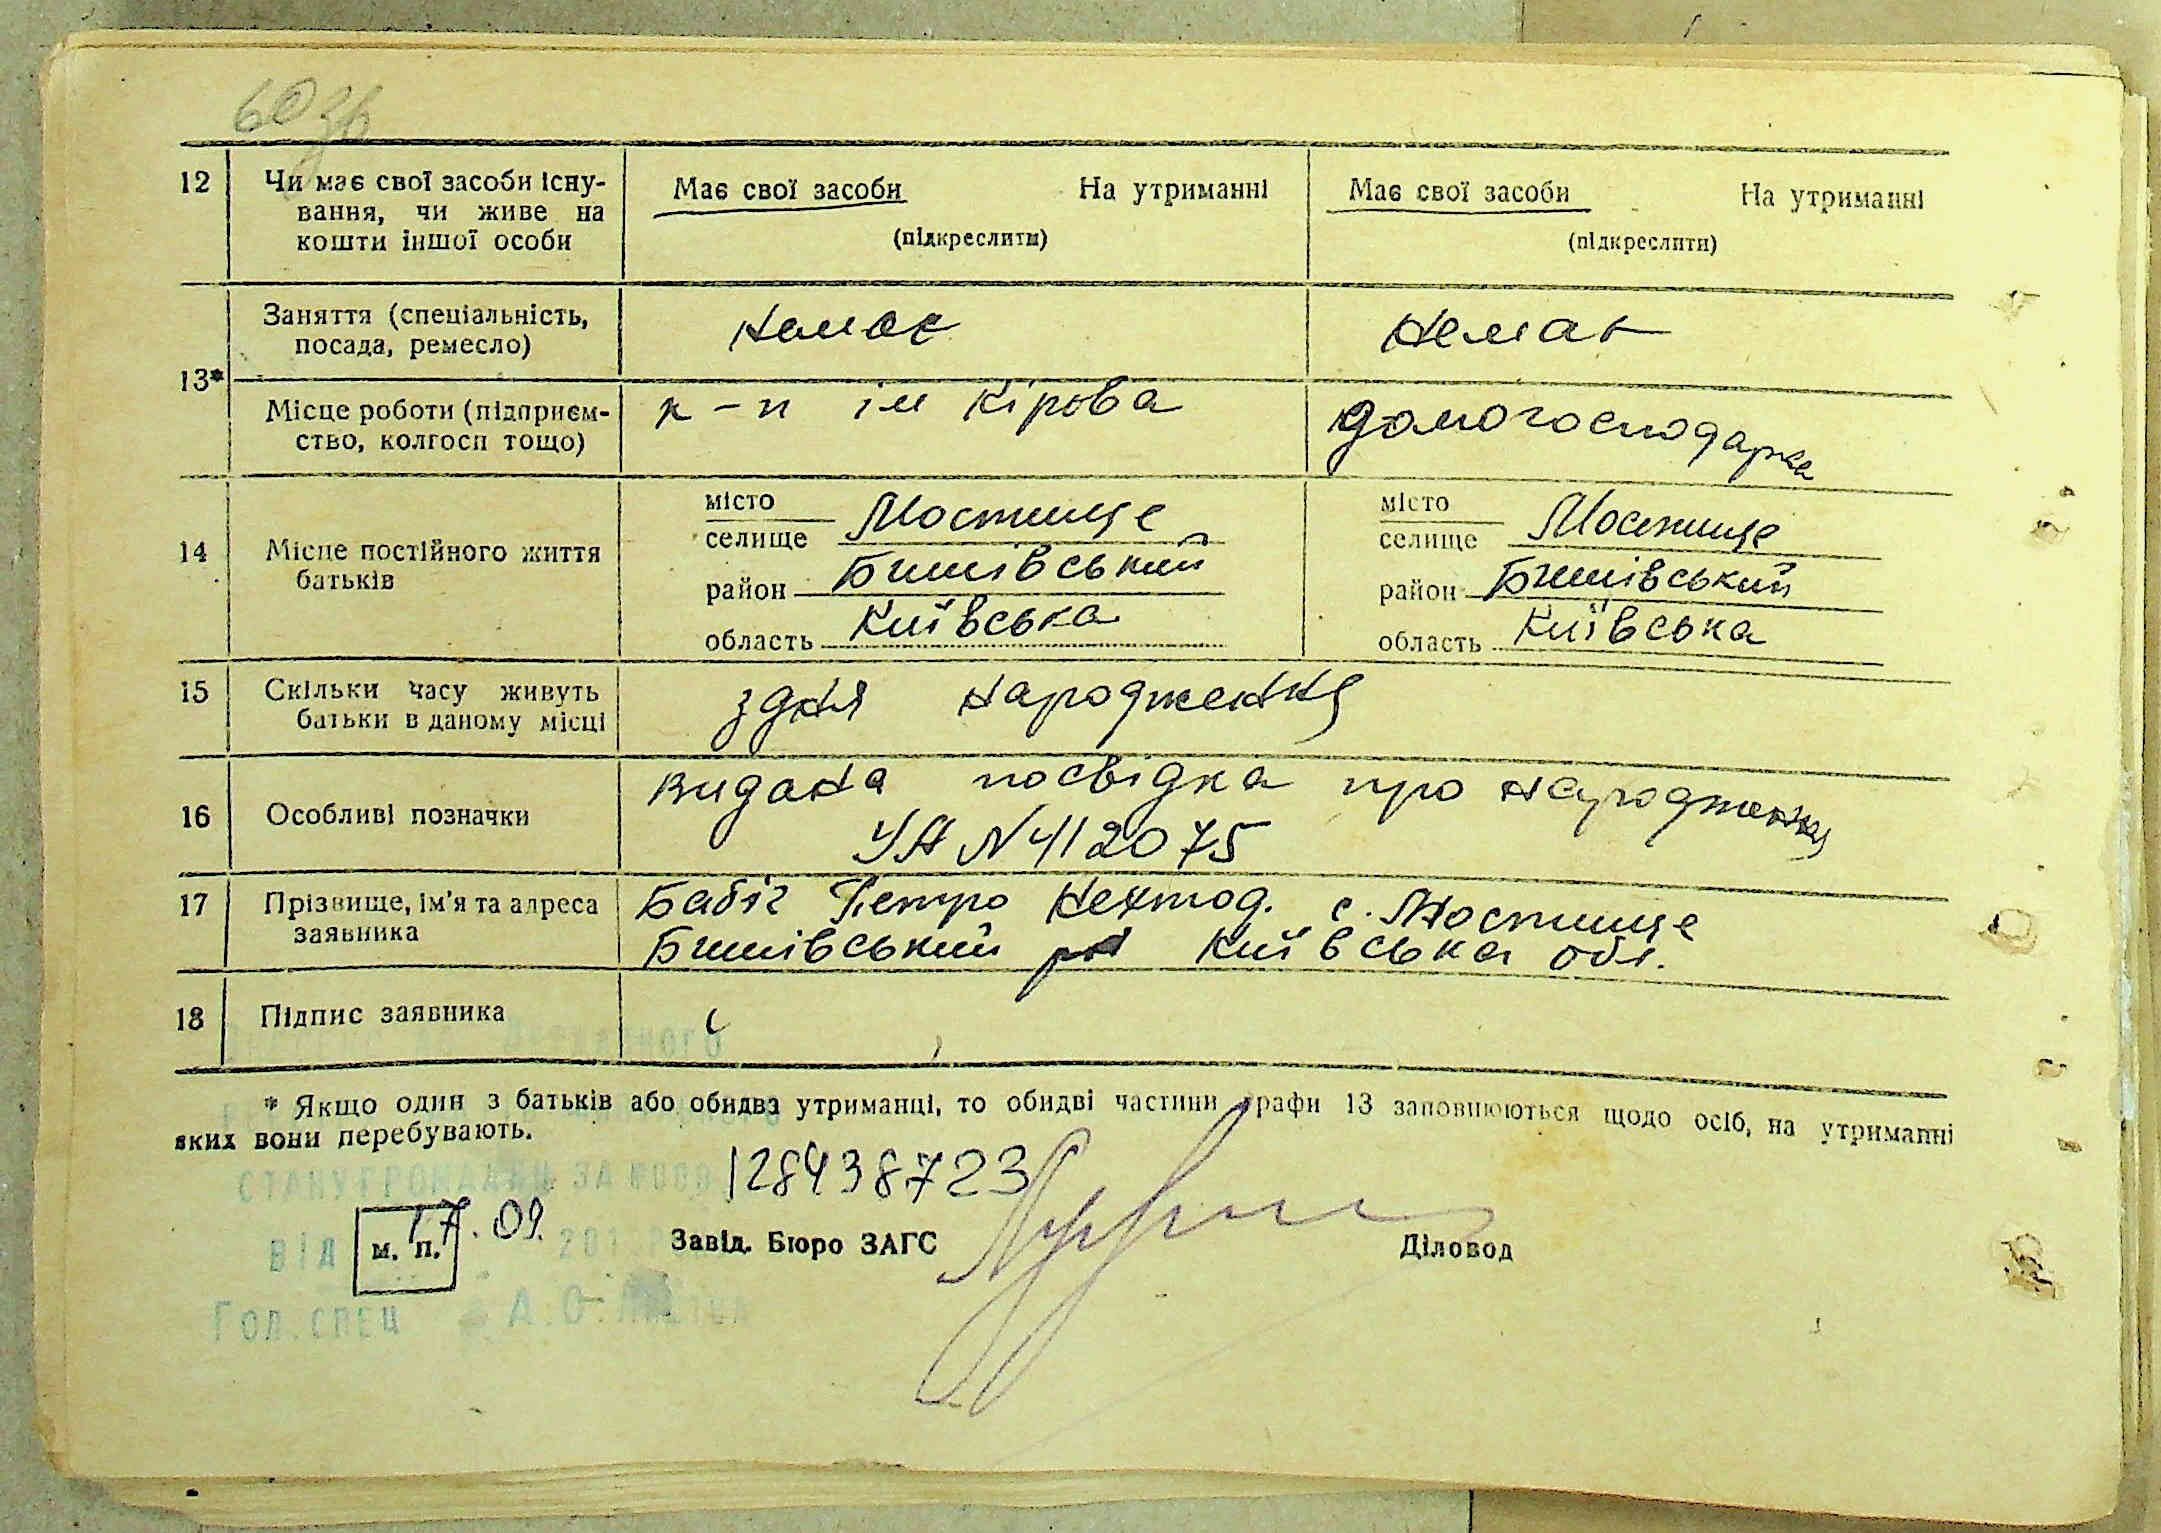 60 зв
12 Чи має свої засоби існу- Має свої засоби На утриманні Має свої засоби На утриманні
вання, чи живе на
кошти іншої особи (підкреслити) (підкреслити)
Заняття (спеціальність, немає немає
посада, ремесло)
13*
Місце роботи (підприєм- к-п ім Кірова домогосподарка
ство, колгосп тощо)
місто місто
селище Мостище селище Мостище
14 Місце постійного життя
батьків
район Бишівський район Бишівський
область Київська область Київська
15 Скільки часу живуть з дня народження
батьки в даному місці
видана посвідка про народження
16 Особливі позначки
УА N 412075
17 Прізвище, ім'я та адреса Бабіг Петро с. Мостище
заявника Бишівський Київська обл.
18 Підпис заявника
* Якщо один з батьків або обидва утриманці, то обидві частини графи 13 заповнюються щодо осіб, на утриманні
яких вони перебувають.
128438723
СТАНУ ГРОМАДЯН ЗА
ВІД 17.09. 201
м. п. Завід. Бюро ЗАГС Діловод
Гол. спец А.О.